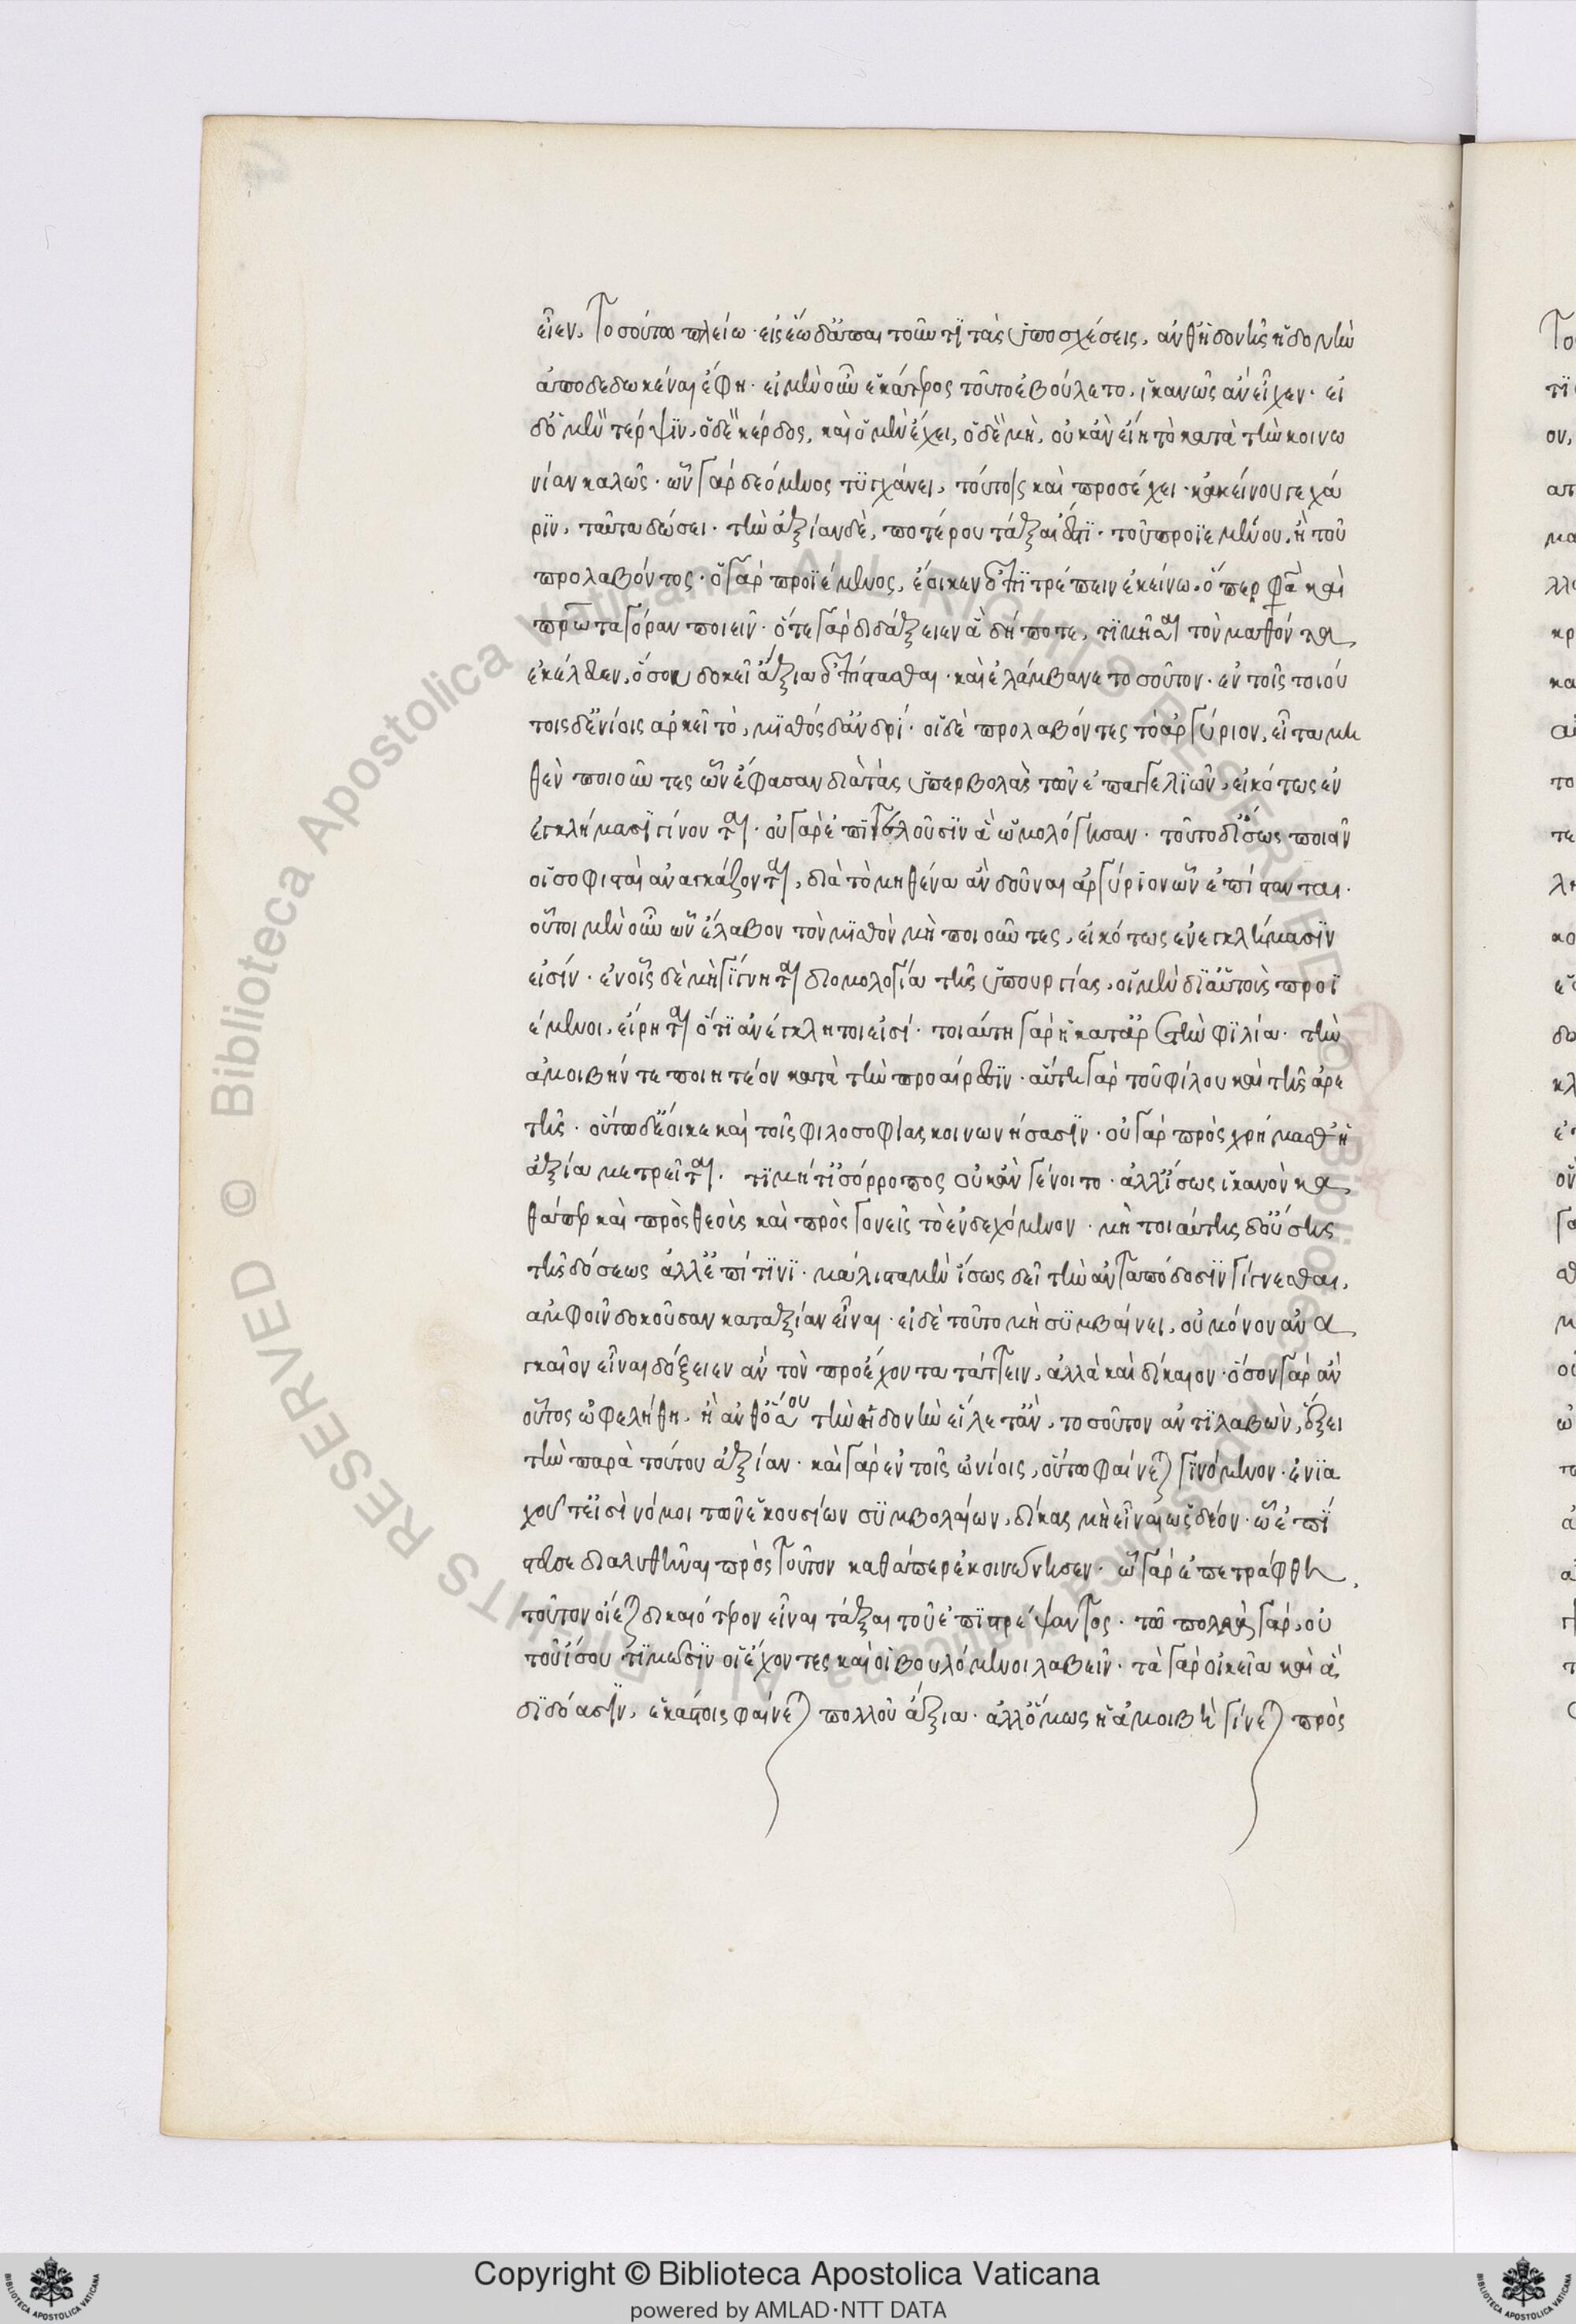 εἶεν, Τοσούτω πλείω· εἰς ἕω δ' ἀπαιτοῦντι τὰς ὑποσχέσεις, ἀνθ' ἡδονῆς ἡδονὴν
ἀποδεδωκέναι ἔφη· εἰ μὲν οὖν ἑκάτερος τοῦτο ἐβούλετο, ἱκανῶς ἂν εἶχεν· εἰ
δ' ὁ μὲν τέρψιν, ὁ δὲ κέρδος, καὶ ὁ μὲν ἔχει, ὁ δὲ μὴ, οὐκ ἂν εἴη τὸ κατὰ τὴν κοινω
νίαν καλῶς· ὧν γὰρ δεόμενος τϋγχάνει, τούτοις καὶ προσέχει· κἀκείνου γε χά
ρϊν, ταῦτα δώσει· τὴν ἀξίαν δὲ, ποτέρου τάξαι ἐστϊ· τοῦ προϊεμένου, ἢ τοῦ
προλαβόντος· ὁ γὰρ προϊέμενος, ἔοικεν ἐπϊτρέπειν ἐκείνω· ὅπερ φασὶ καὶ
πρωταγόραν ποιεῖν· ὅτε γὰρ διδάξειεν ἃ δήποτε, τϊμῆσαι τὸν μαθόντα
ἐκέλευεν, ὅσου δοκεῖ ἄξια ἐπίστασθαι· καὶ ἐλάμβανε τοσοῦτον· ἐν τοῖς τοιού
τοις δ' ἐνίοις ἀρκεῖ τὸ, μϊσθὸς δ' ἀνδρί· οἱ δὲ προλαβόντες τὸ ἀργύριον, εἶτα μη
θὲν ποιοῦντες ὧν ἔφασαν διὰ τὰς ὑπερβολὰς τῶν ἐπαγγελϊῶν, εἰκότως ἐν
ἐγκλήμασϊ γίνονται· οὐ γὰρ ἐπϊτελοῦσϊν ἃ ὡμολόγησαν· τοῦτο δ' ἴσως ποιεῖν
οἱ σοφισταὶ ἀναγκάζονται, διὰ τὸ μηθένα ἂν δοῦναι ἀργύριον ὧν ἐπίστανται·
οὗτοι μὲν οὖν ὧν ἔλαβον τὸν μϊσθὸν μὴ ποιοῦντες, εἰκότως ἐν ἐγκλήμασϊν
εἰσίν· ἐν οἷς δὲ μὴ γίγνηται διομολογία τῆς ὑπουργίας, οἱ μὲν δϊ' αὐτοὺς προϊ
έμενοι, εἴρηται ὅτϊ ἀνέγκλητοι εἰσί· τοιαύτη γὰρ ἡ κατ' ἀρετὴν φϊλία· τὴν
ἀμοιβήν τε ποιητέον κατὰ τὴν προαίρεσϊν· αὕτη γὰρ τοῦ φίλου καὶ τῆς ἀρε
τῆς· οὕτω δ' ἔοικε καὶ τοῖς φιλοσοφίας κοινωνήσασϊν· οὐ γὰρ πρὸς χρήμαθ' ἡ
ἀξία μετρεῖται. τϊμή τ' ἰσόρροπος οὐκ ἂν γένοιτο· ἀλλ' ἴσως ἱκανὸν κα
θάπερ καὶ πρὸς θεοὺς καὶ πρὸς γονεῖς τὸ ἐνδεχόμενον· μὴ τοιαύτης δ' οὔσης
τῆς δόσεως ἀλλ' ἐπί τϊνϊ· μάλιστα μὲν ἴσως δεῖ τὴν ἀνταπόδοσϊν γίγνεσθαι,
ἀμφοῖν δοκοῦσαν κατ' ἀξίαν εἶναι· εἰ δὲ τοῦτο μὴ σϋμβαίνει, οὐ μόνον ἀνα
γκαῖον εἶναι δόξειεν ἂν τὸν προέχοντα τάττειν, ἀλλὰ καὶ δίκαιον· ὅσον γὰρ ἂν
οὗτος ὠφελήθη, ἢ ἀνθ' ὅσου τὴν ἡδονὴν εἵλετ' ἂν, τοσοῦτον ἀντϊλαβὼν, ἕξει
τὴν παρὰ τούτου ἀξίαν· καὶ γὰρ ἐν τοῖς ὠνίοις, οὕτω φαίνεται γϊνόμενον· ἐνϊα
χοῦ τ' εἰσὶ νόμοι τῶν ἑκουσίων σϋμβολαίων, δίκας μὴ εἶναι, ὡς δέον· ᾧ ἐπί
στευσε διαλυθῆναι πρὸς τοῦτον καθάπερ ἐκοινώνησεν· ᾧ γὰρ ἐπετράφθη,
τοῦτον οἴεται δικαιότερον εἶναι τάξαι τοῦ ἐπϊτρέψαντος· τὰ πολλὰ γὰρ, οὐ
τοῦ ἴσου τϊμῶσϊν οἱ ἔχοντες καὶ οἱ βουλόμενοι λαβεῖν· τὰ γὰρ οἰκεῖα καὶ ἃ
δϊδόασϊν, ἑκάστοις φαίνεται πολλοῦ ἄξια· ἀλλ' ὅμως ἡ ἀμοιβὴ γίνεται πρὸς
Copyright © Biblioteca Apostolica Vaticana
powered by AMLAD·NTT DATA